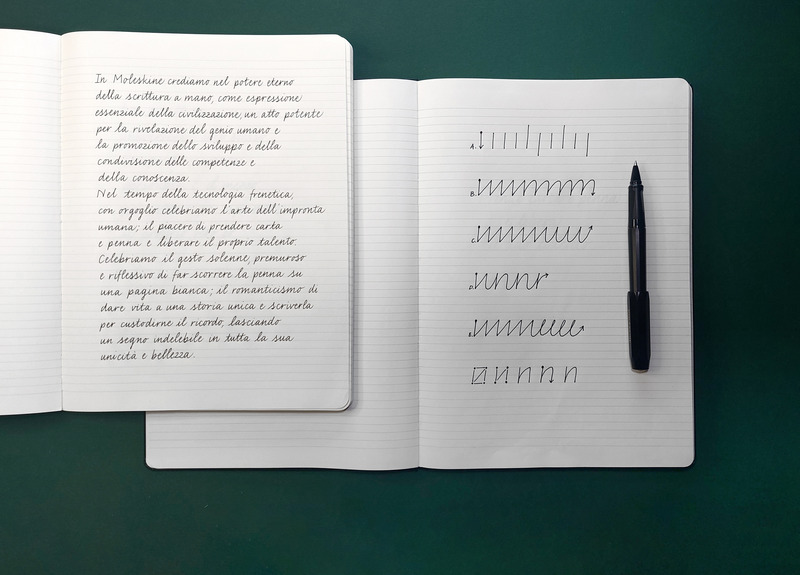 In Moleskine crediamo nel potere eterno
della scrittura a mano, come espressione
essenziale della civilizzazione, un atto potente
per la rivelazione del genio umano e
la promozione dello sviluppo e della
condivisione delle competenze e
della conoscenza.
Nel tempo della tecnologia frenetica,
con orgoglio celebriamo l'arte dell'impronta
umana; il piacere di prendere carta
e penna e liberare il proprio talento.
Celebriamo il gesto solenne, premuroso
e riflessivo di far scorrere la penna su
una pagina bianca; il romanticismo di
dare vita a una storia unica e scriverla
per custodirne il ricordo, lasciando
un segno indelebile in tutta la sua
unicità e bellezza.
A.
B.
C.
D.